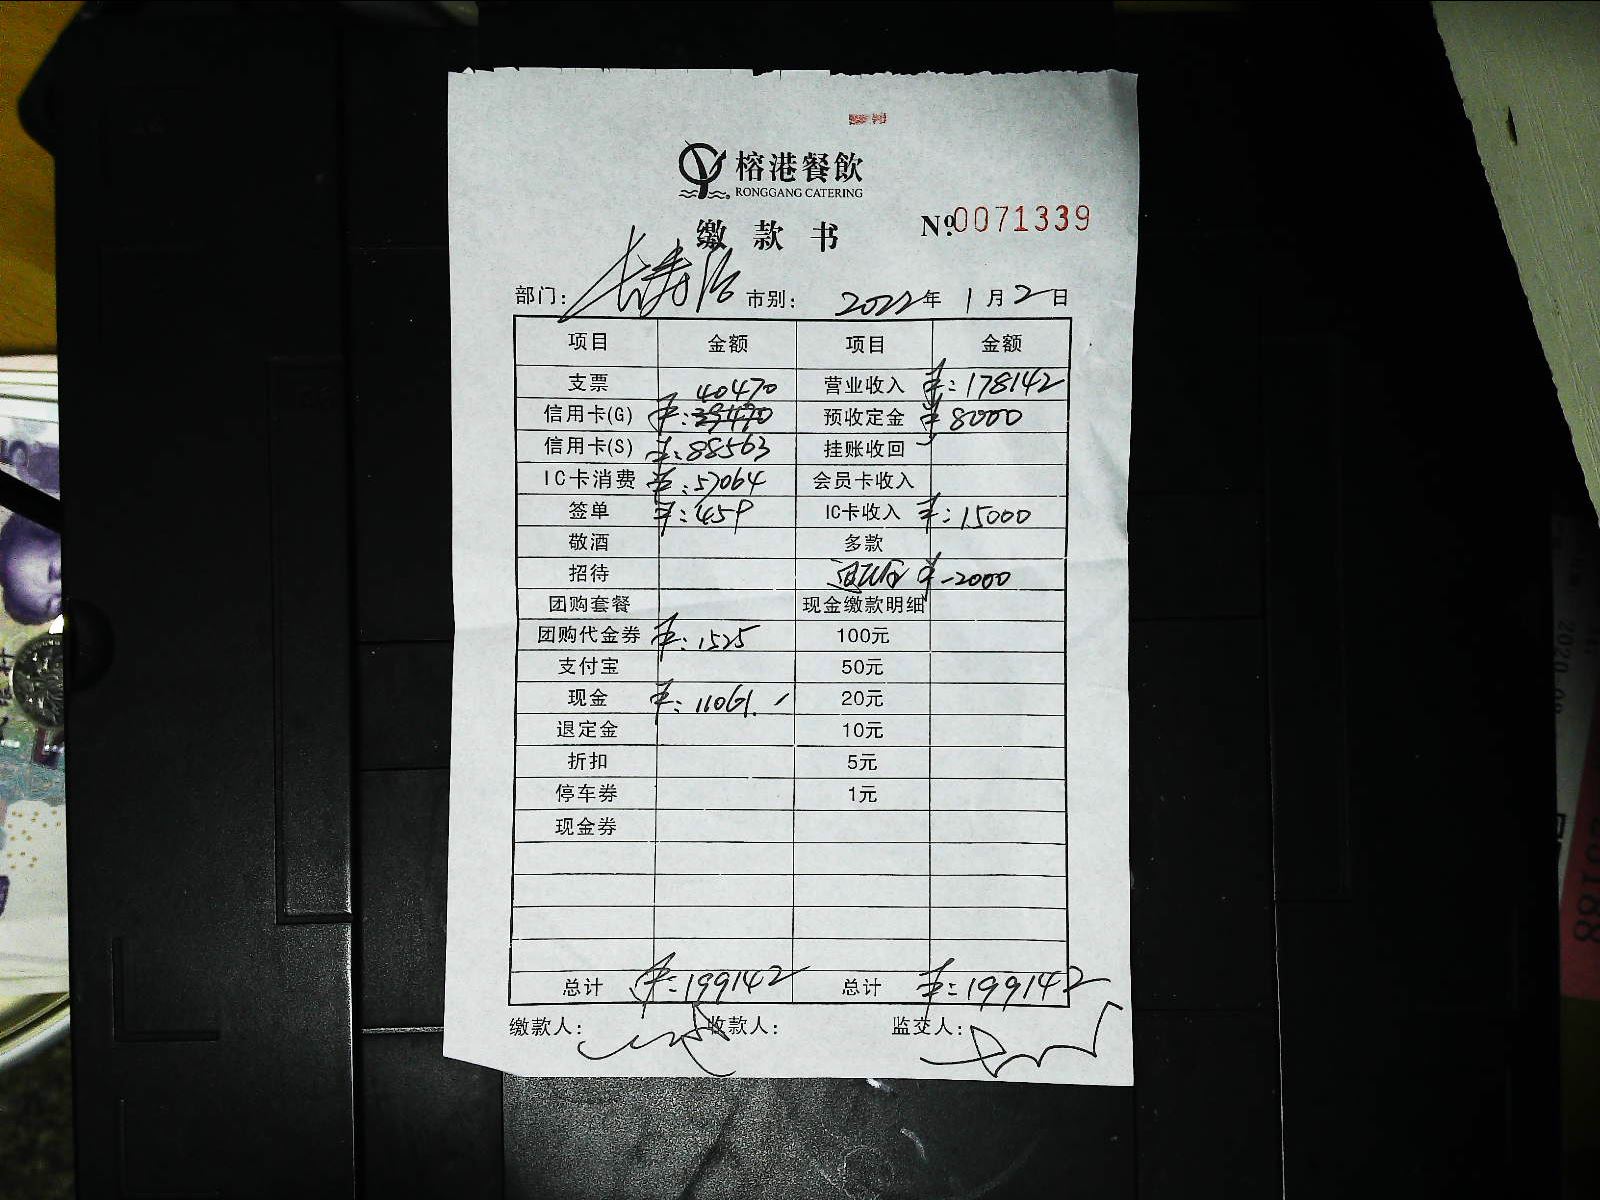 榕港餐飲
RONGGANG CATERING
缴款书 №0071339
部门: 长寿路 市别: 2022年1月2日
项目 金额 项目 金额
支票 营业收入 ¥:178142
信用卡(G) ¥:40470 预收定金 ¥8000
信用卡(S) ¥:88563 挂账收回
IC卡消费 ¥:57064 会员卡收入
签单 ¥:459 IC卡收入 ¥:15000
敬酒 多款
招待 ¥-2000
团购套餐 现金缴款明细
团购代金券 ¥:1525 100元
支付宝 50元
现金 ¥:11061. 20元
退定金 10元
折扣 5元
停车券 1元
现金券
总计 ¥:199142 总计 ¥:199142
缴款人: 收款人: 监交人: